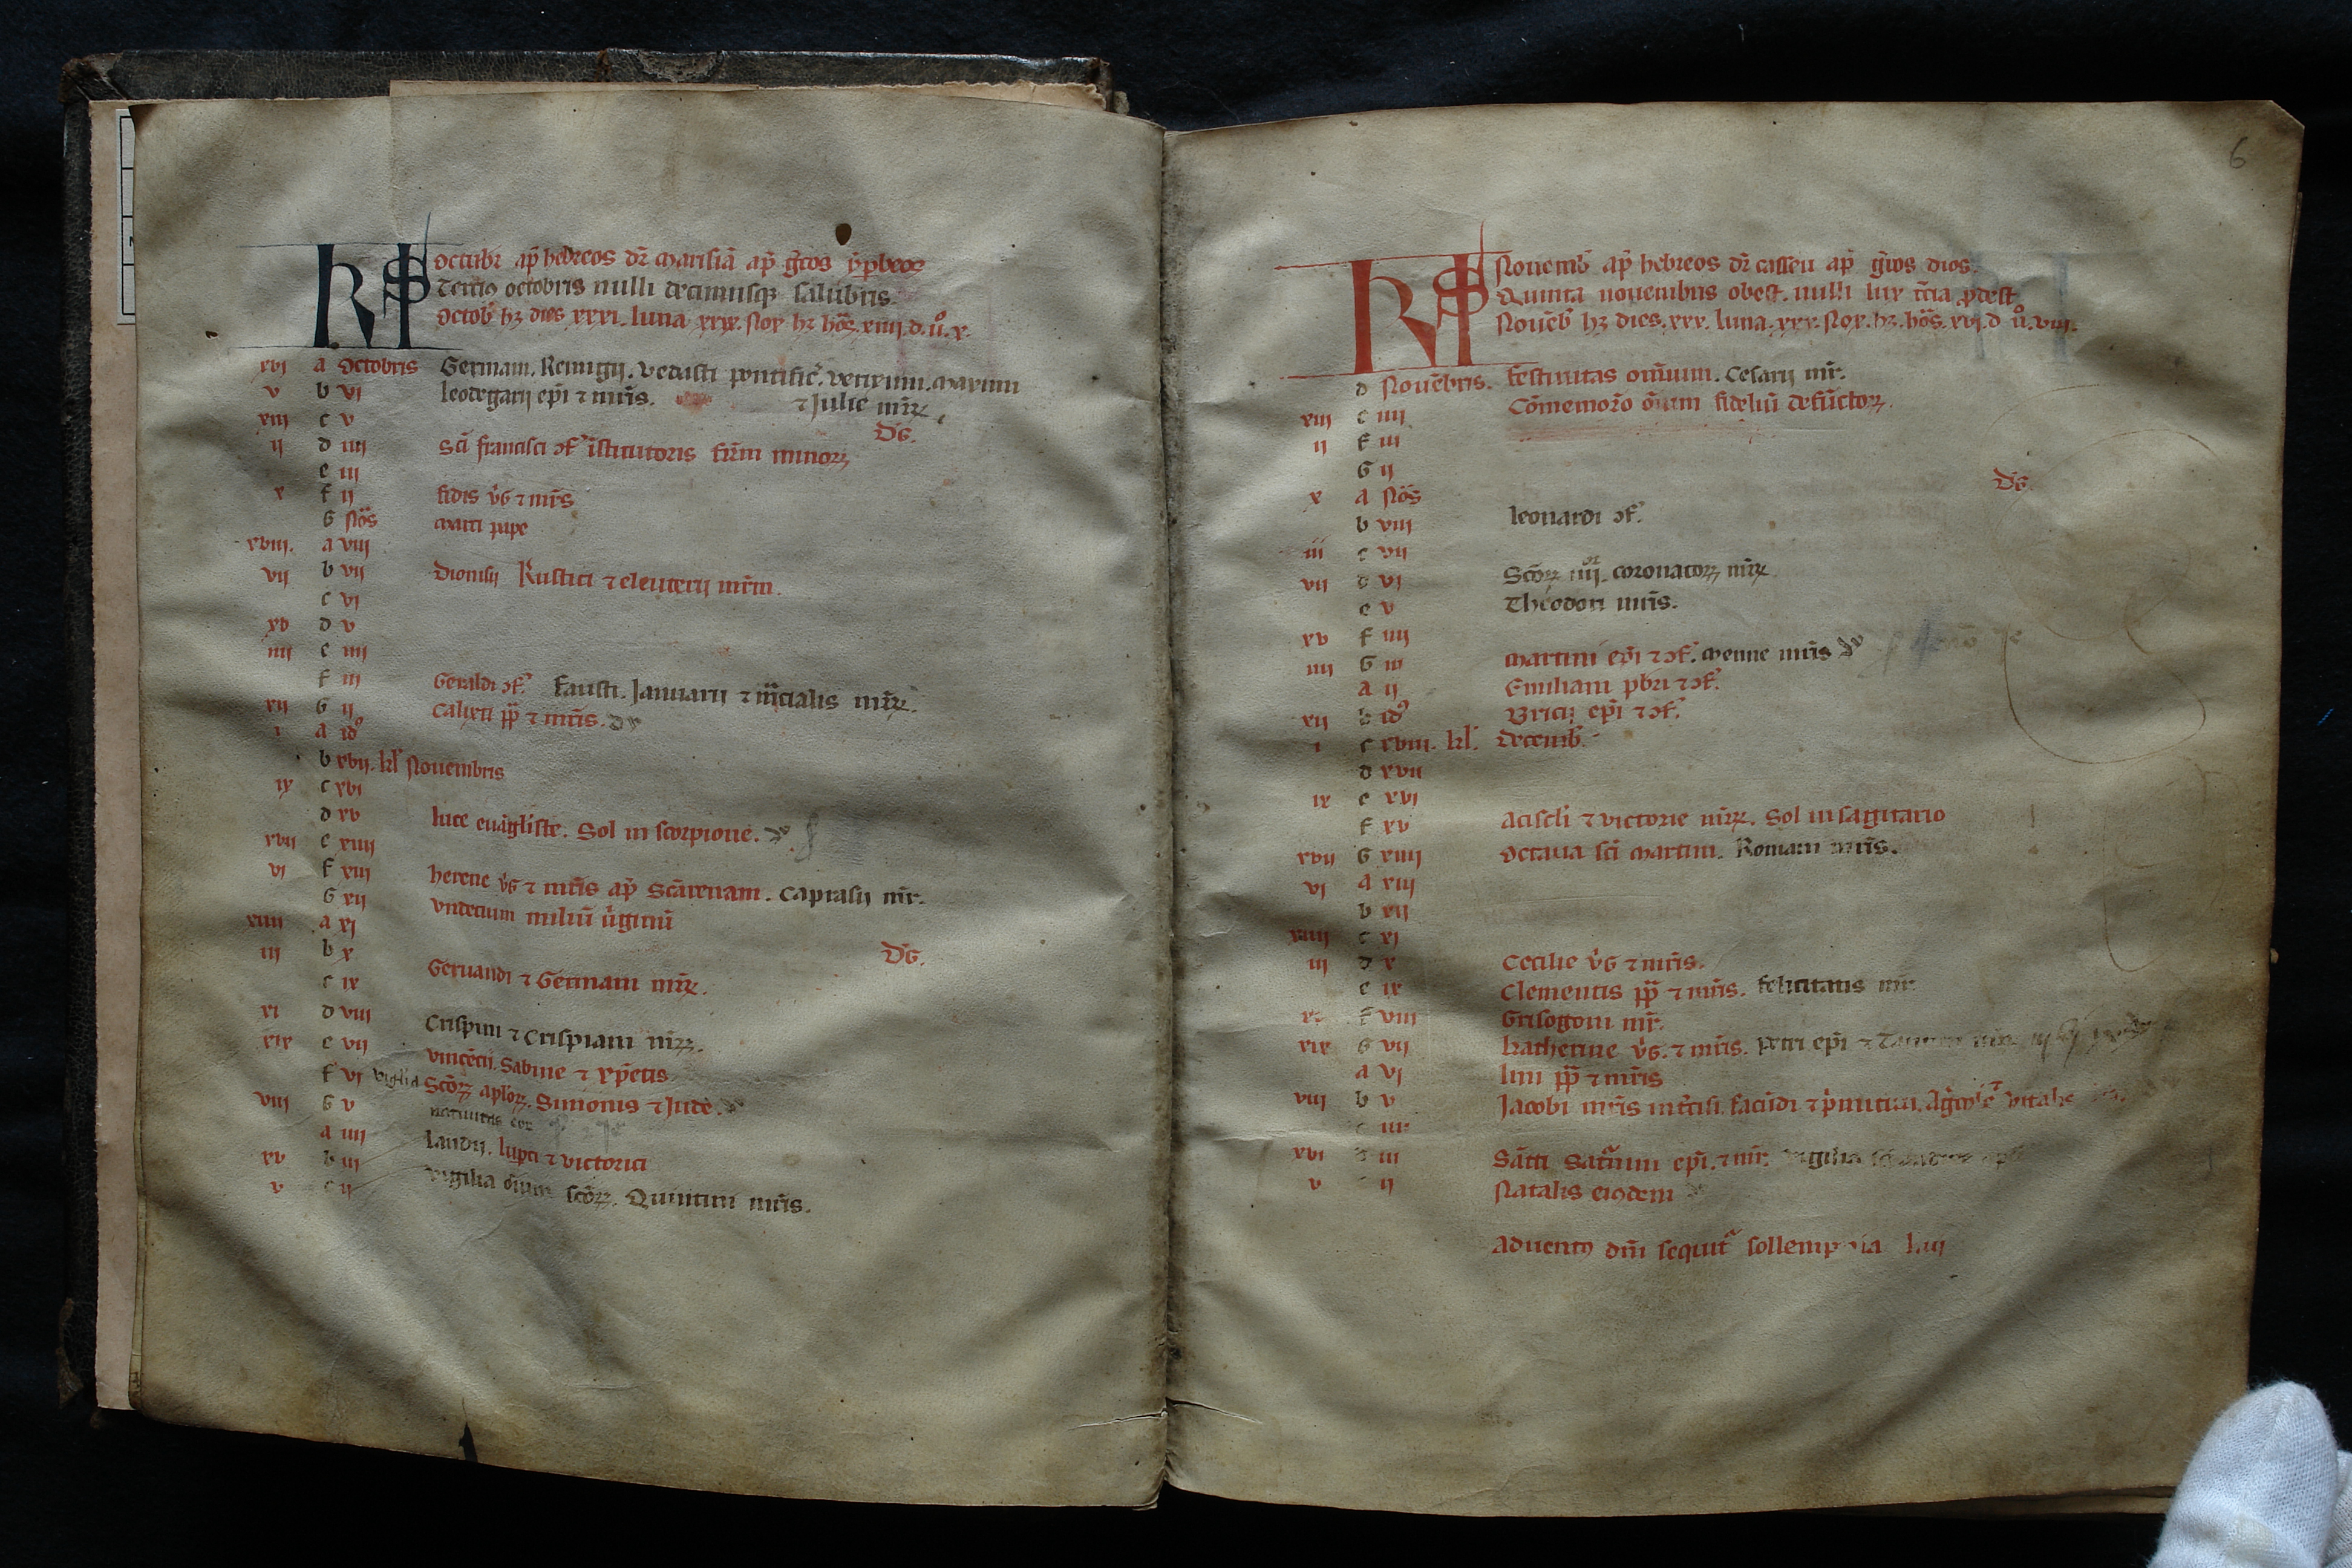 KL Octubr ap̄ hebreos dr̄ marisiā ap̄ gr̄cos
Terciꝰ octobris nulli decimusqꝫ salubris.
Octob̄ hꝫ dies xxxi. luna xxix. Nox hꝫ hōs. xiiii. d. ů. x.
xvi a Octobris Germani. Remigii. Vedasti pontific̄. Verissimi. Maximi
v b vi leodegarii ep̄i ⁊ mr̄is. ⁊ Julie mr̄ꝝ
xiii c v D̄G.
ii d iiii Sc̄i francisci ↄf̄. īstitutoris fr̄m minorꝝ
e iii
x f ii fidis v̄G ⁊ mr̄is
G Nōs Marci pape
xviii. a viii
vii b vii Dionisii Rustici ⁊ eleuterii mr̄m.
c vi
xv d v
iiii e iiii
f iii Geraldi ↄf̄. Fausti. Januarii ⁊ martialis mr̄ꝝ.
xii G ii Calixti pp̄ ⁊ mr̄is.
i a idꝰ
b xvii. kl̄ Nouembris
ix c xvi
d xv luce euāgliste. Sol in scorpione.
xvii e xiiii
vi f xiii herene v̄G ⁊ mr̄is ap̄ Scārenam. Caprasii mr̄.
G xii Vndecim miliū ūginū
xiiii a xi
iii b x D̄G.
c ix Geruandi ⁊ Germani mr̄ꝝ.
xi d viii
xix e vii Crispini ⁊ Crispiani mr̄ꝝ.
f vi vigilia Vincētii. Sabine ⁊ xp̄etis
viii G v Sc̄orꝝ ap̄lorꝝ. Simonis ⁊ Jude.
a iiii
xv b iii Laudii. luperci ⁊ victorici
v c ii Vigilia ōium sc̄oꝝ. Quintini mr̄is.
6
KL Nouemb̄ ap̄ hebreos dr̄ casleu ap̄ gr̄cos dios.
Quinta nouembris obest. nulli lux tr̄cia ꝓdest
Nouēb̄ hꝫ dies. xxx. luna. xxx. Nox. hꝫ. hōs. xvi. d ů. viii.
d Nouēbris. Festiuitas om̄ium. Cesarii mr̄.
xiii e iiii Cōmemorō ōium fideliū defūctorꝝ.
ii f iii
G ii D̄G.
x a Nōs
b viii leonardi ↄf̄.
iii c vii
vii d vi Sc̄orꝝ iiii.or coronatorꝝ mr̄ꝝ
e v Theodori mr̄is.
xv f iiii
iiii G iii Martini ep̄i ⁊ ↄf̄. Menne mr̄is
a ii Emiliani pb̄ri ⁊ ↄf̄.
xii b idꝰ Bricii ep̄i ⁊ ↄf̄.
i c xviii. kl̄. decemb̄.
d xvii
ix e xvi
f xv Aciscli ⁊ victorie mr̄ꝝ. Sol in sagitario
xvii G xiiii Octaua sc̄i Martini. Romani mr̄is.
vi a xiii
b xii
xiiii c xi
iii d x Cecilie v̄G ⁊ mr̄is.
e ix Clementis pp̄ ⁊ mr̄is. felicitatis mr̄
f viii Grisogoni mr̄.
xix G vii katherine v̄G. ⁊ mr̄is. petri ep̄i
a vi lini pp̄ ⁊ mr̄is
viii b v Jacobi mr̄is int̄cisi. facūdi ⁊ p̄mitiui. Agricole
iiii
xvi d iii Sāti Saturnini ep̄i. ⁊ mr̄. Vigilia
v ii Natalis eiꝰdem
Aduentꝰ dn̄i sequit᷑ sollempnia